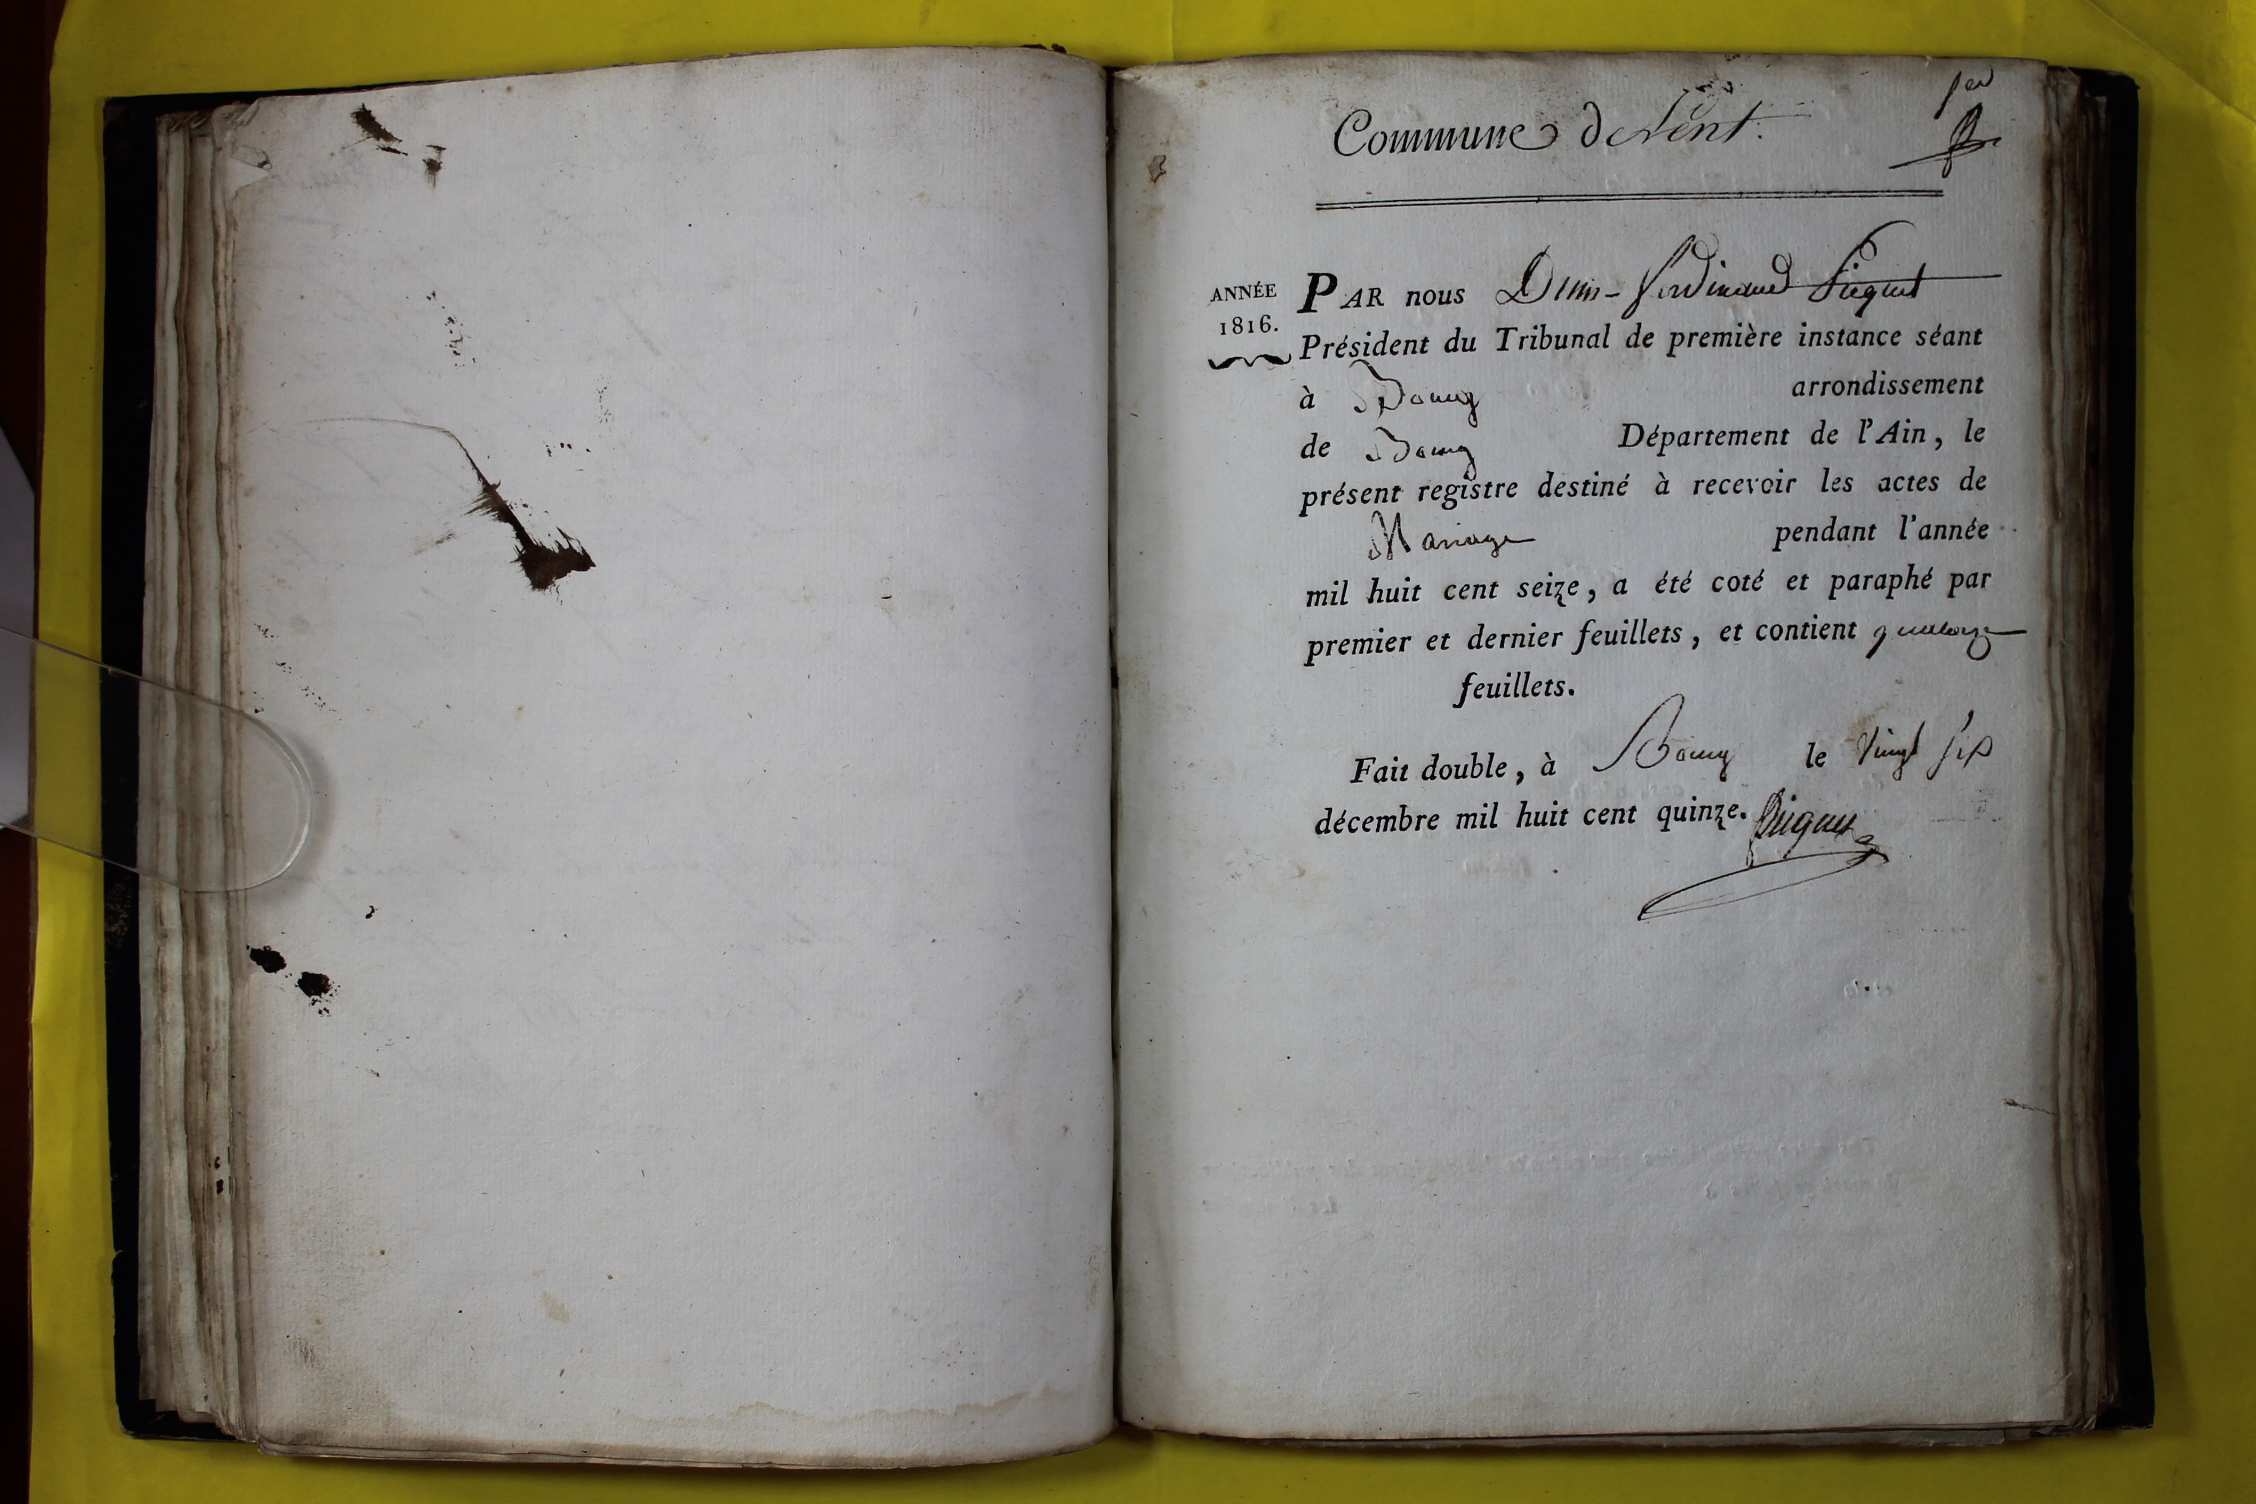 Commune de Lent.
ANNÉE
1816.
PAR nous Denis-Ferdinand Piquet
Président du Tribunal de première instance séant
à Bourg arrondissement
de Bourg Département de l'Ain, le
présent registre destiné à recevoir les actes de
Mariage pendant l'année
mil huit cent seize, a été coté et paraphé par
premier et dernier feuillets, et contient quatorze
feuillets.
Fait double, à Bourg le vingt six
décembre mil huit cent quinze. Piquet